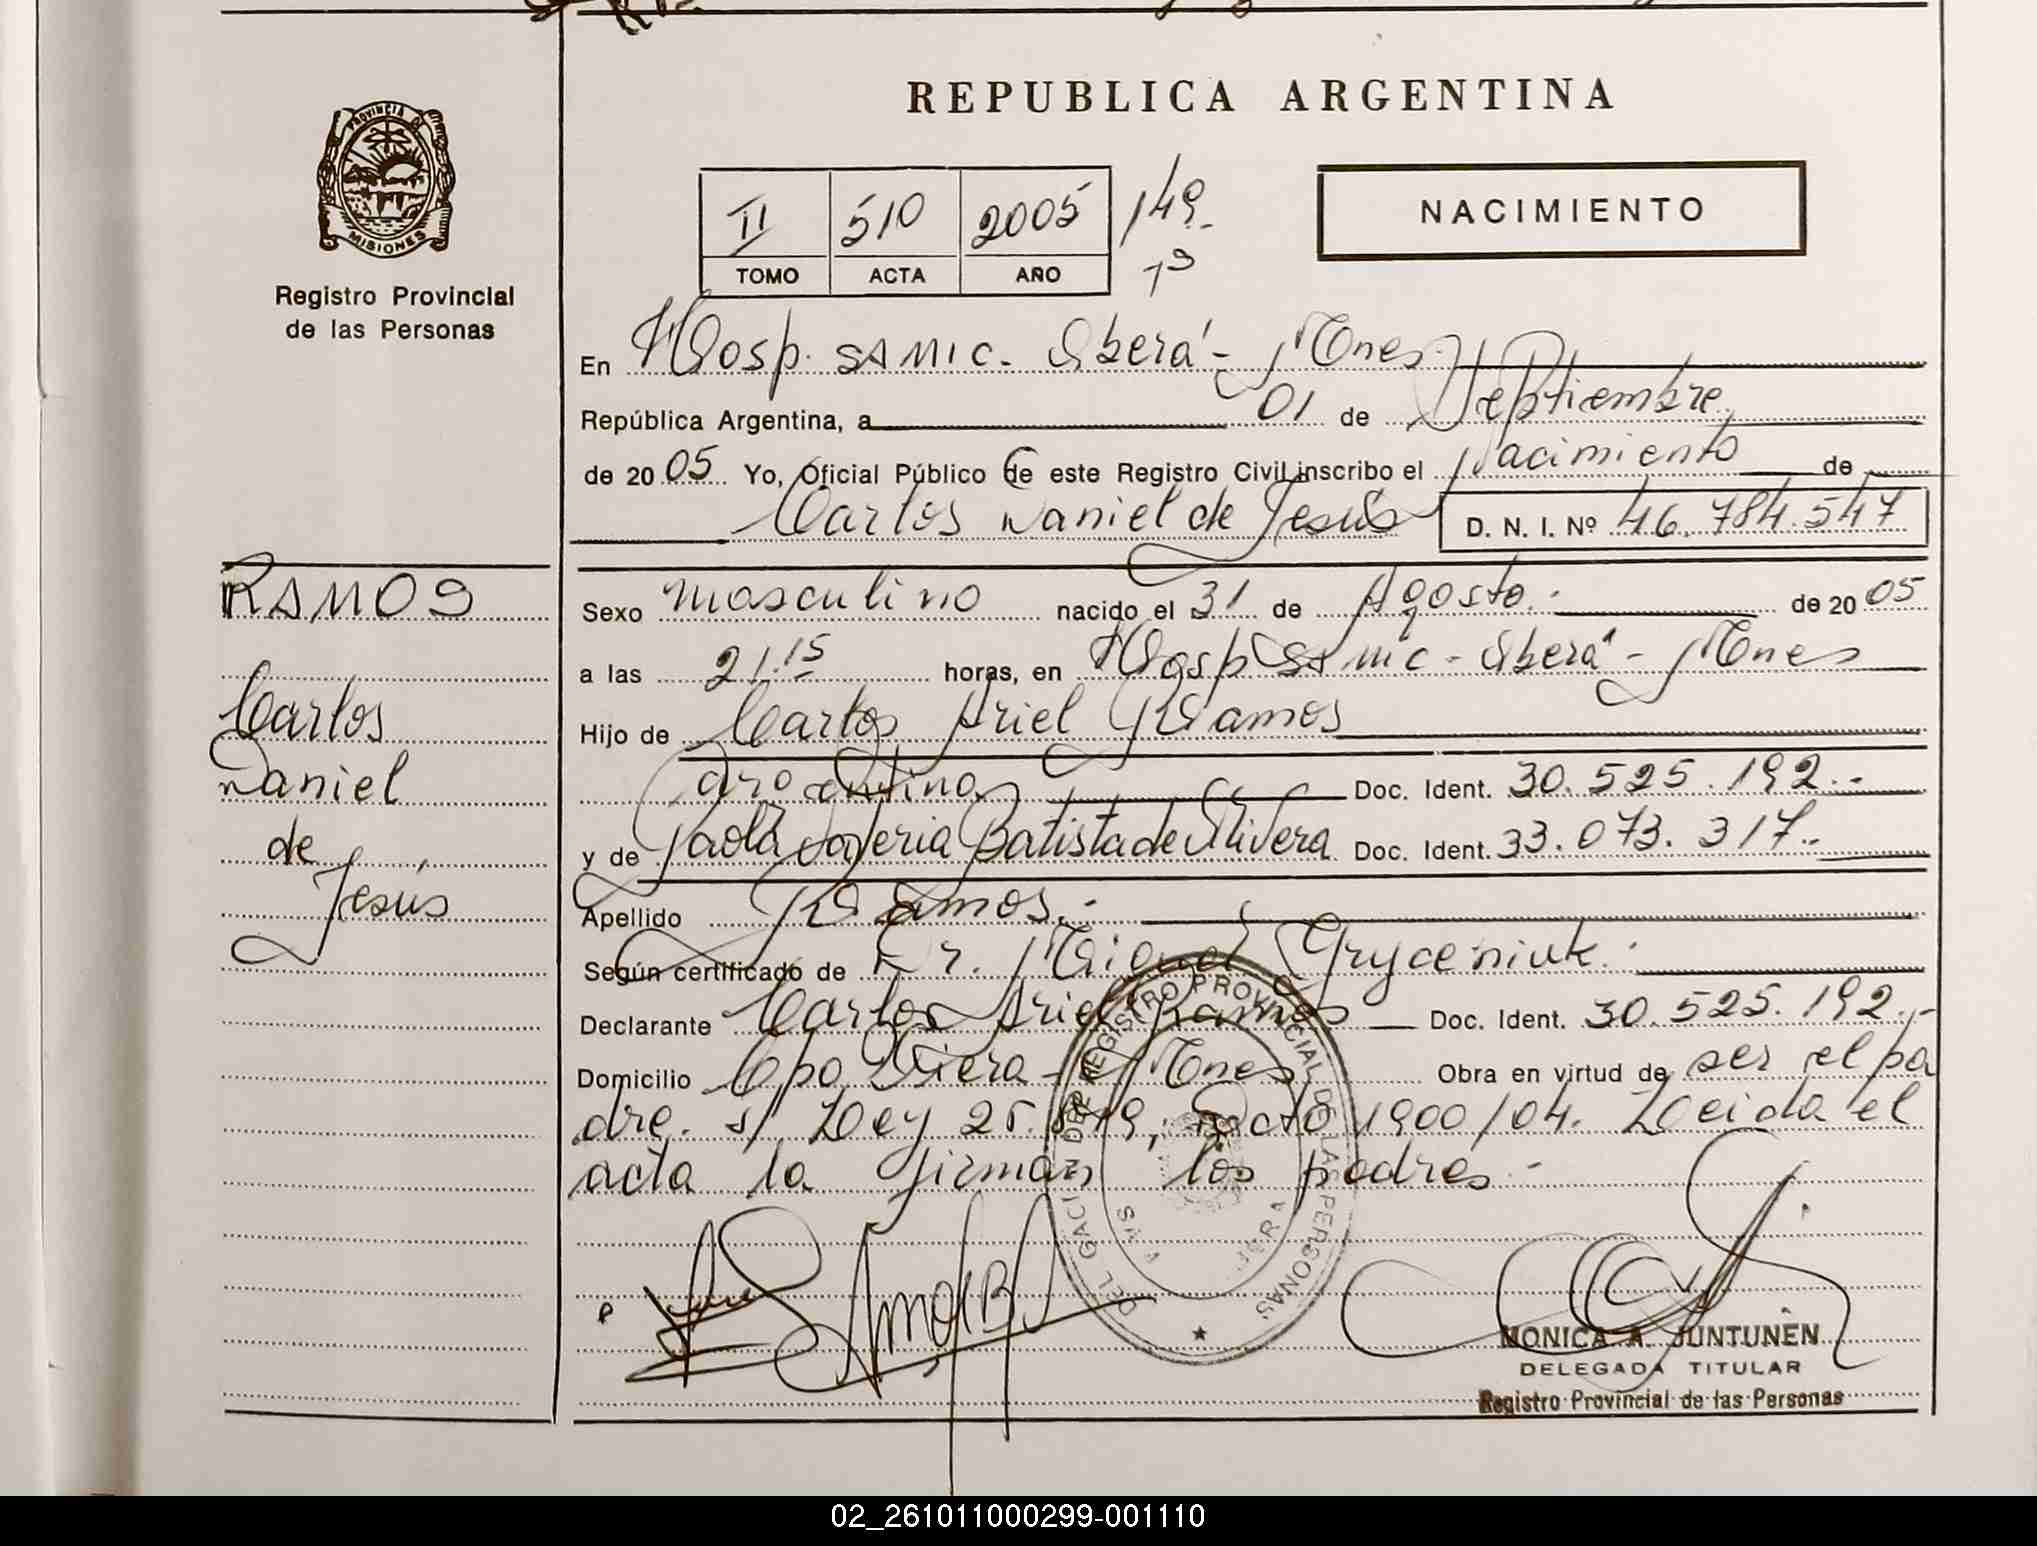 REPUBLICA ARGENTINA
PROVINCIA DE
MISIONES
Registro Provincial
de las Personas
II 510 2005 149
TOMO ACTA AÑO
NACIMIENTO
En Hosp. SAMIC. Oberá - Mnes.
República Argentina, a 01 de Septiembre
de 20 05 Yo, Oficial Público de este Registro Civil inscribo el Nacimiento de
Carlos Daniel de Jesús D. N. I. Nº 46.784.547
RAMOS
Carlos
Daniel
de
Jesús
Sexo masculino nacido el 31 de Agosto.- de 20 05
a las 21.15 horas, en Hosp SAMIC - Oberá - Mnes
Hijo de Carlos Ariel Ramos
argentino Doc. Ident. 30.525.192.-
y de Paola Valeria Batista de Olivera Doc. Ident. 33.073.317.-
Apellido Ramos.-
Según certificado de Dr. Miguel Gryceniuk.
Declarante Carlos Ariel Ramos Doc. Ident. 30.525.192.-
Domicilio Cpo. Viera - Mnes Obra en virtud de ser el pa
dre. s/ Ley 25.819, Dcto 1900/04. Leida el
acta la firman los padres.-
REGISTRO PROVINCIAL DE LAS PERSONAS
MONICA A. JUNTUNEN
DELEGADA TITULAR
Registro Provincial de las Personas
02_261011000299-001110